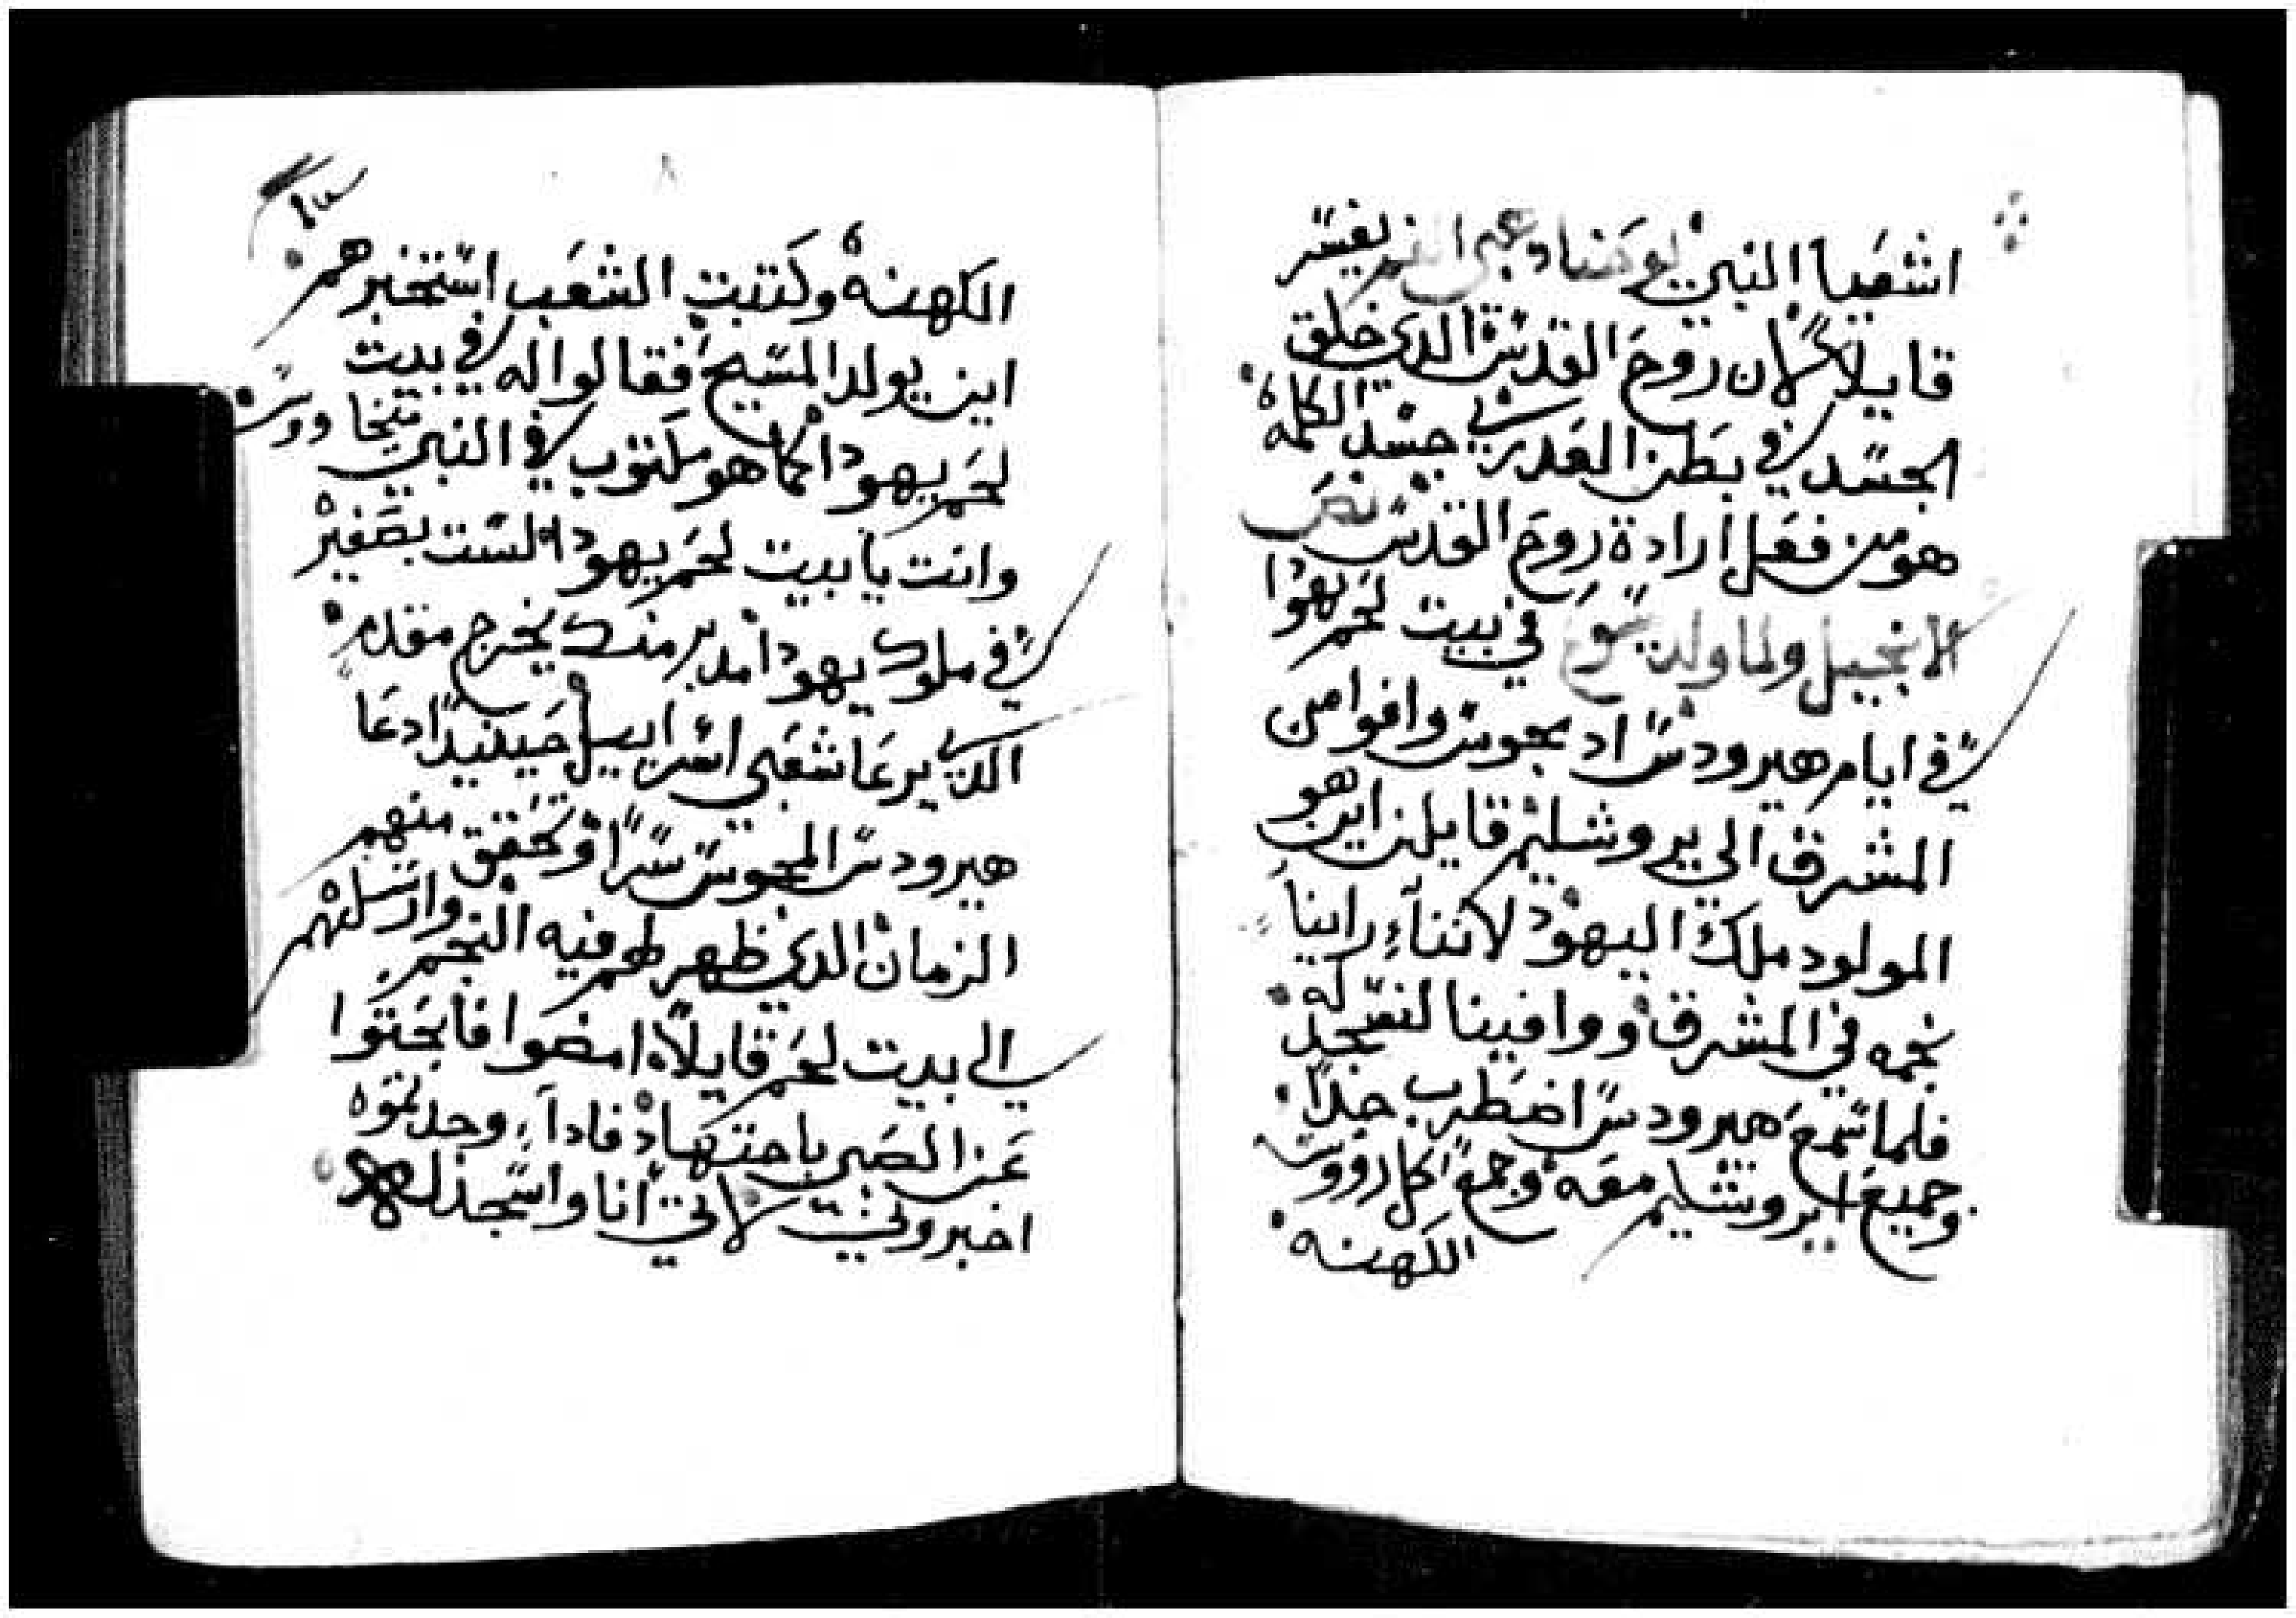 اشعيا النبي يوحنا دهبي الفم يفسر
قايلاً لان روح القدس الدي خلق
الجسد في بطن العدري جسد الكلمه
هو من فعل ارادة روح القدس نص
الانجيل ولما ولد يسوع في بيت لحم يهودا
في ايام هيرودس اد مجوس وافوا من
المشرق الي يروشليم قايلين اين هو
المولود ملك اليهود لاننا راينا
نجمه في المشرق ووافينا لنسجد له
فلما سمع هيرودس اضطرب جداً
وجميع ايروشليم معه وجمع كل رووس
الكهنه
الكهنه وكتبت الشعب استخبرهم
اين يولد المسيح فقالوا له في بيت
لحم يهودا كما هو مكتوب في النبي ميخا ورس
وانت يا بيت لحم يهودا لست بصغير
في ملوك يهودا مدبر منك يخرج مقدم
الدي يرعا شعبي اسراييل حينيد ادعا
هيرودس المجوس سراً وتحقق منهم
الزمان الدي ظهر لهم فيه النجم وارسلهم
الي بيت لحم قايلاً امضوا فابحتوا
عن الصبي باجتهاد فادا وجدتموه
اخبروني لاتي انا واسجد له